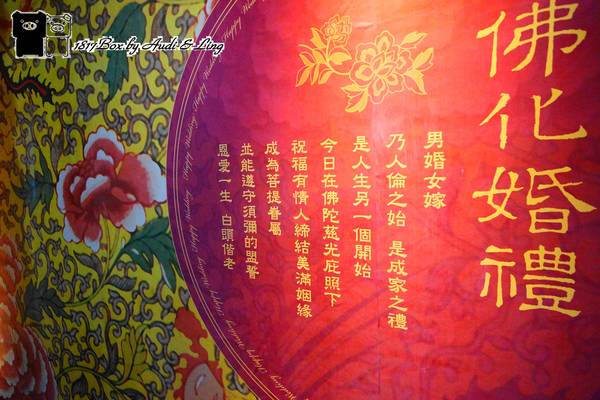 佛化婚禮
男婚女嫁
乃人倫之始 是成家之禮
是人生另一個開始
今日在佛陀慈光庇照下
祝福有情人締結美滿姻緣
成為菩提眷屬
並能遵守須彌的盟誓
恩愛一生 白頭偕老
Happy Wedding Happy Wedding Happy Wedding Happy Wedding
1817Box by Audi & Ling